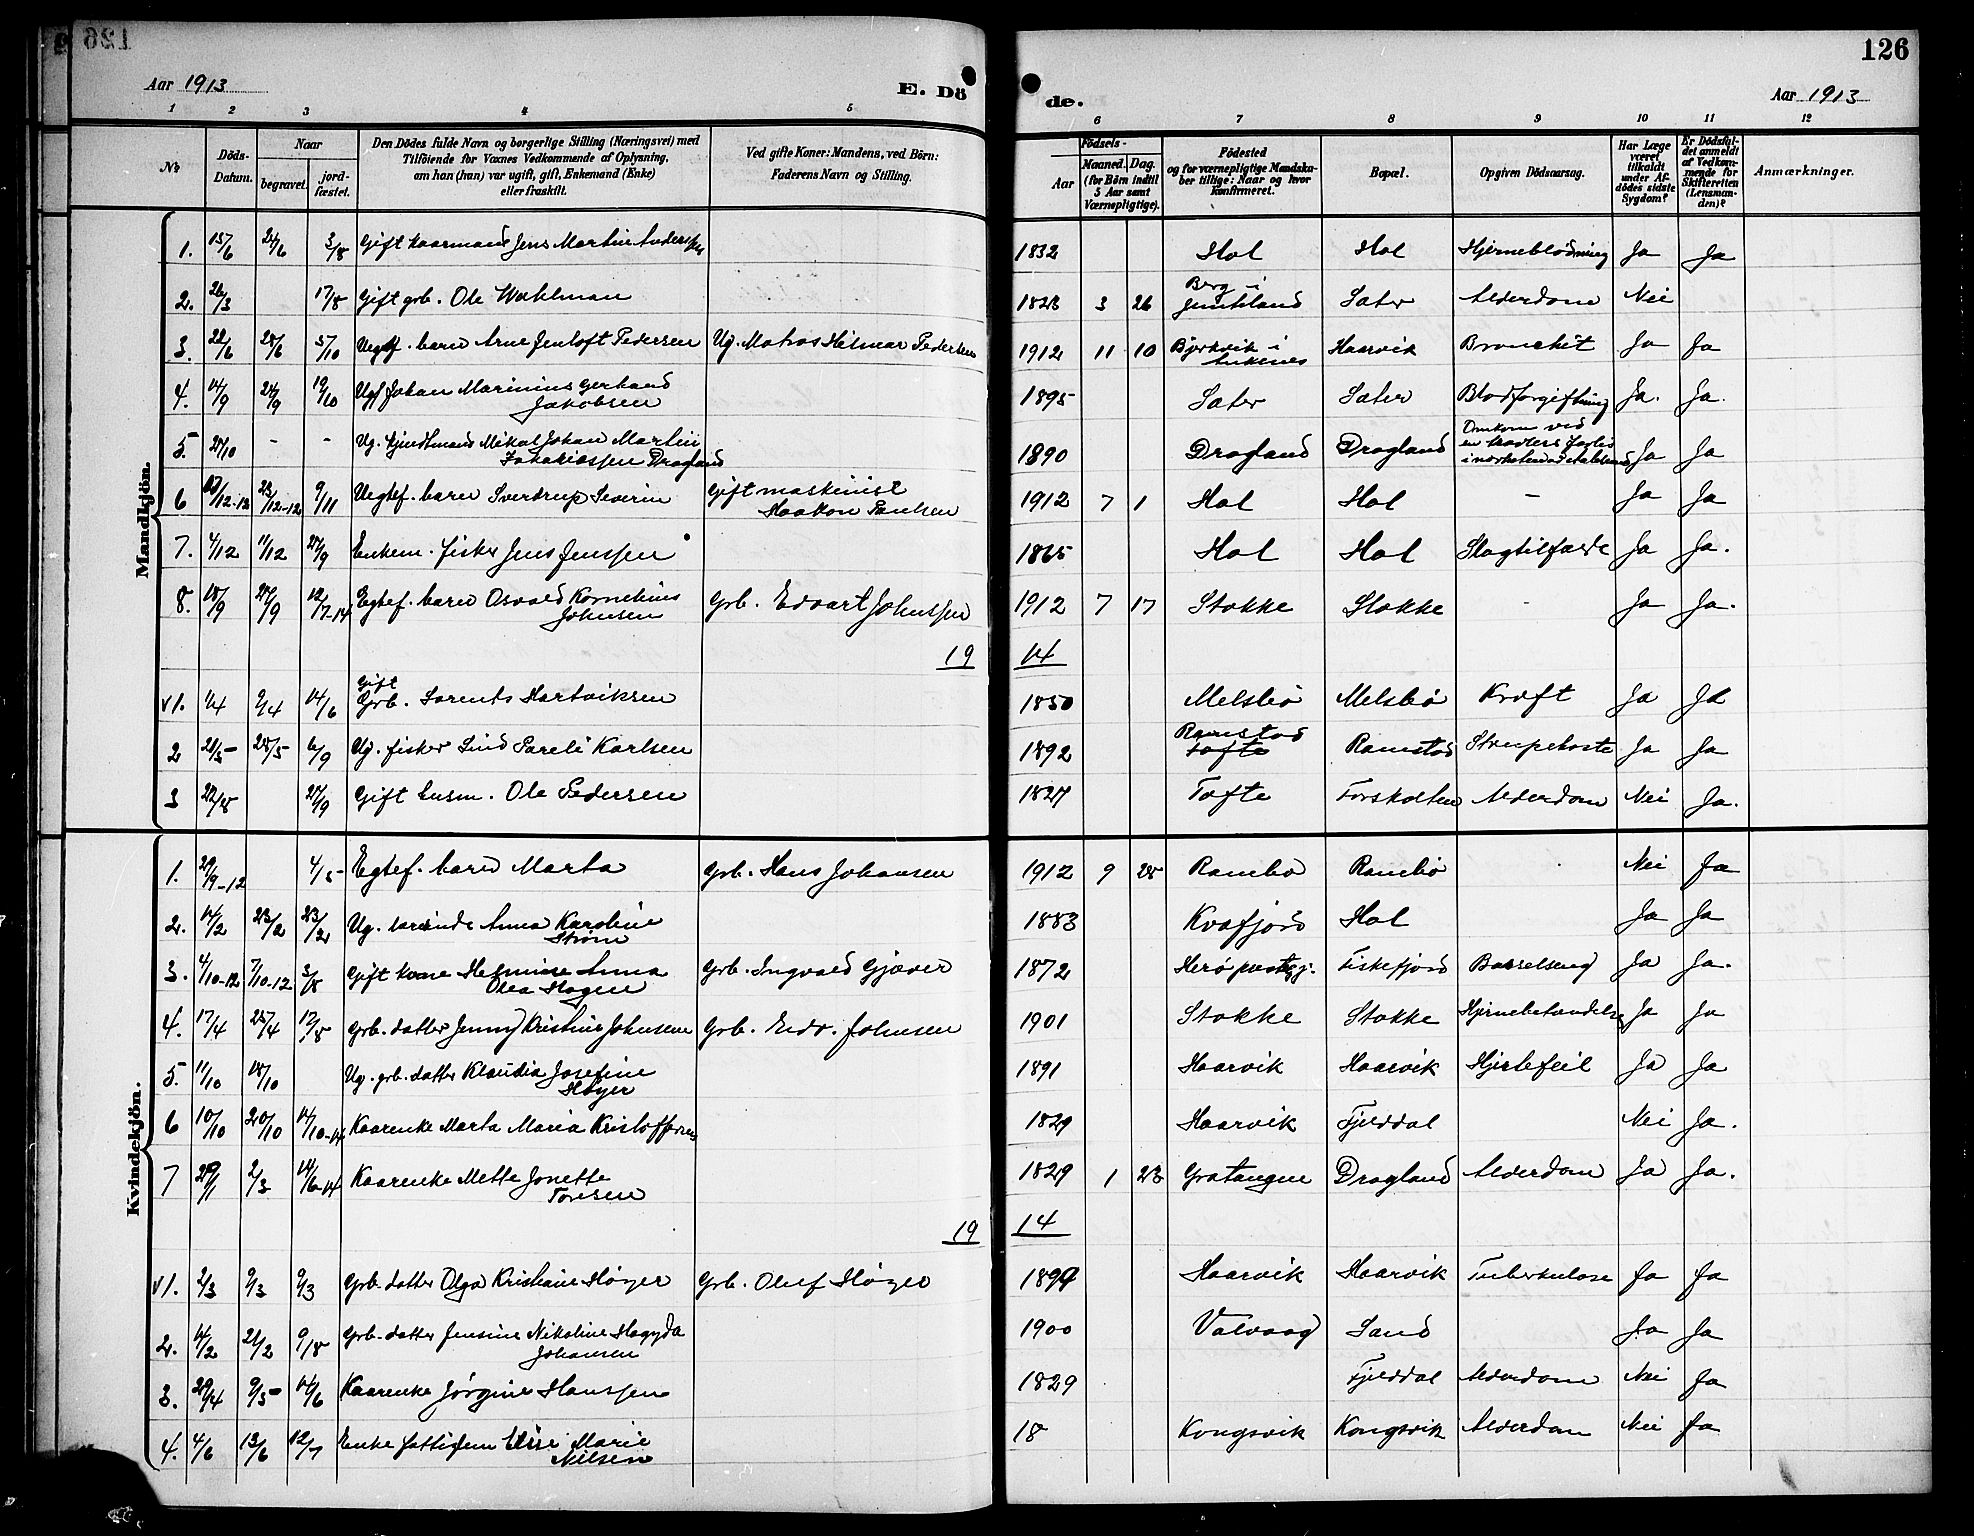 126
Aar 1913
E. Dö
de.
Aar 1913
1 2 3 4 5
6 7 8 9 10 11 12
No.
Döds-Datum.
Naar
begravet.
jord-fæstet.
Den Dödes fulde Navn og borgerlige Stilling (Næringsvei) med
Tilföiende for Voxnes Vedkommende af Oplysning,
om han (hun) var ugift, gift, Enkemand (Enke)
eller fraskilt.
Ved gifte Koner: Mandens, ved Börn:
Faderens Navn og Stilling.
Födsels-
Aar
Maaned. Dag.
(for Börn indtil
5 Aar samt
Værnepligtige).
Födested
og for værnepligtige Mandska-
ber tillige: Naar og hvor
konfirmeret.
Bopæl.
Opgiven Dödsaarsag.
Har Læge
været
tilkaldt
under Af-
dödes sidste
Sygdom?
Er Dödsfal-
det anmeldt
af Vedkom-
mende for
Skifteretten
(Lensman-
den)?
Anmærkninger.
Mandkjön.
1. 15/6 24/6 3/8 Gift kaarmand Jens Martin Anderssen 1832 Hol Hol Hjerneblødning Ja Ja
2. 26/3 17/8 Gift grb. Ole Wahlman 1823 3 26 Berg i Jemtland Sater Alderdom Nei
3. 22/6 28/6 5/10 Uegtef. barn Arne Jentoft Pedersen Ug. Matros Hilmar Pedersen 1912 11 10 Bjerkvik i Ankenes Haarvik Bronchit Ja Ja
4. 14/9 24/9 19/10 Ugf Johan Marinius Gerhard Jakobsen 1895 Sater Sater Blodforgiftning Ja. Ja.
5. 27/10 - - Ug. Mikal Johan Martin Zakariassen Dragland 1890 Dragland Dragland Omkom ved en trawlers forlis i nærheten av Ja Ja
6 17/12-12 23/12-12 9/11 Uegtef. barn Sverdrup Severin Gift maskinist Haakon Paulsen 1912 7 1 Hol Hol - Ja Ja
7. 4/12 11/12 27/9 Enkem. fisker Jens Jenssen 1865 Hol Hol Slagtilfælde Ja Ja.
8. 18/9 27/9 12/7-14 Egtef. barn Osvald Kornelius Johnsen Grb. Edvart Johnssen 1912 7 17 Stokke Stokke - Ja Ja.
19 14
v1. 1/4 9/4 14/6 Gift Grb. Lorents Hartviksen 1850 Melsbø Melsbø Kræft Ja Ja
2 21/5 28/5 6/9 Ug. fisker Lind Pareli Karlsen 1892 Ramstad Tofte Ramstad Strupehoste Ja Ja
3 22/8 27/9 Gift husm. Ole Pedersen 1827 Tofte Forshalten Alderdom Nei Ja.
Kvindekjön.
1. 29/9-12 4/5 Egtef. barn Marta Grb. Hans Johansen 1912 9 25 Rambo Rambø Nei Ja
2. 14/2 23/2 23/2 Ug. Anna Karoline Strøm 1883 Kvæfjord Hol Ja Ja
3. 4/10-12 7/10-12 3/8 Gift kone Helmine Anna Olea Hagen Grb. Ingvald Gjæver 1872 Herø prestegj. Fiskefjord Barselseng Ja Ja.
4. 17/4 25/4 17/8 Grb. datter Jenny Kristine Johnsen Grb. Edv. Johnsen 1901 Stokke Stokke Hjernebetændelse Ja Ja
5. 11/10 18/10 Ug. grb. datter Klaudia Josefine Høyer 1891 Haarvik Haarvik Hjertefeil Ja Ja
6 10/10 20/10 14/10-14 Kaarenke Marta Maria Kristoffersen 1829 Haarvik Fjelddal Nei Ja.
7 29/1 2/3 14/6-14 Kaarenke Mette Jonette Toresen 1829 1 23 Gratangen Dragland Alderdom Ja Ja.
19 14
v1. 2/3 9/3 9/3 Grb datter Olga Kristiane Høyer Grb. Oluf Høyer 1894 Haarvik Haarvik Tuberkulose Ja Ja
2. 14/2 21/2 9/8 Grb-datter Jensine Nikoline Hagyda Johansen 1900 Valvaag Sand Ja Ja
3. 29/4 9/5 14/6 Kaarenke Jørgine Hanssen 1829 Fjelddal Alderdom Nei Ja
4. 4/6 13/6 12/7 Enke fattiglem Elise Marie Nilsen 18 Kongsvik Kongsvik Alderdom Nei Ja